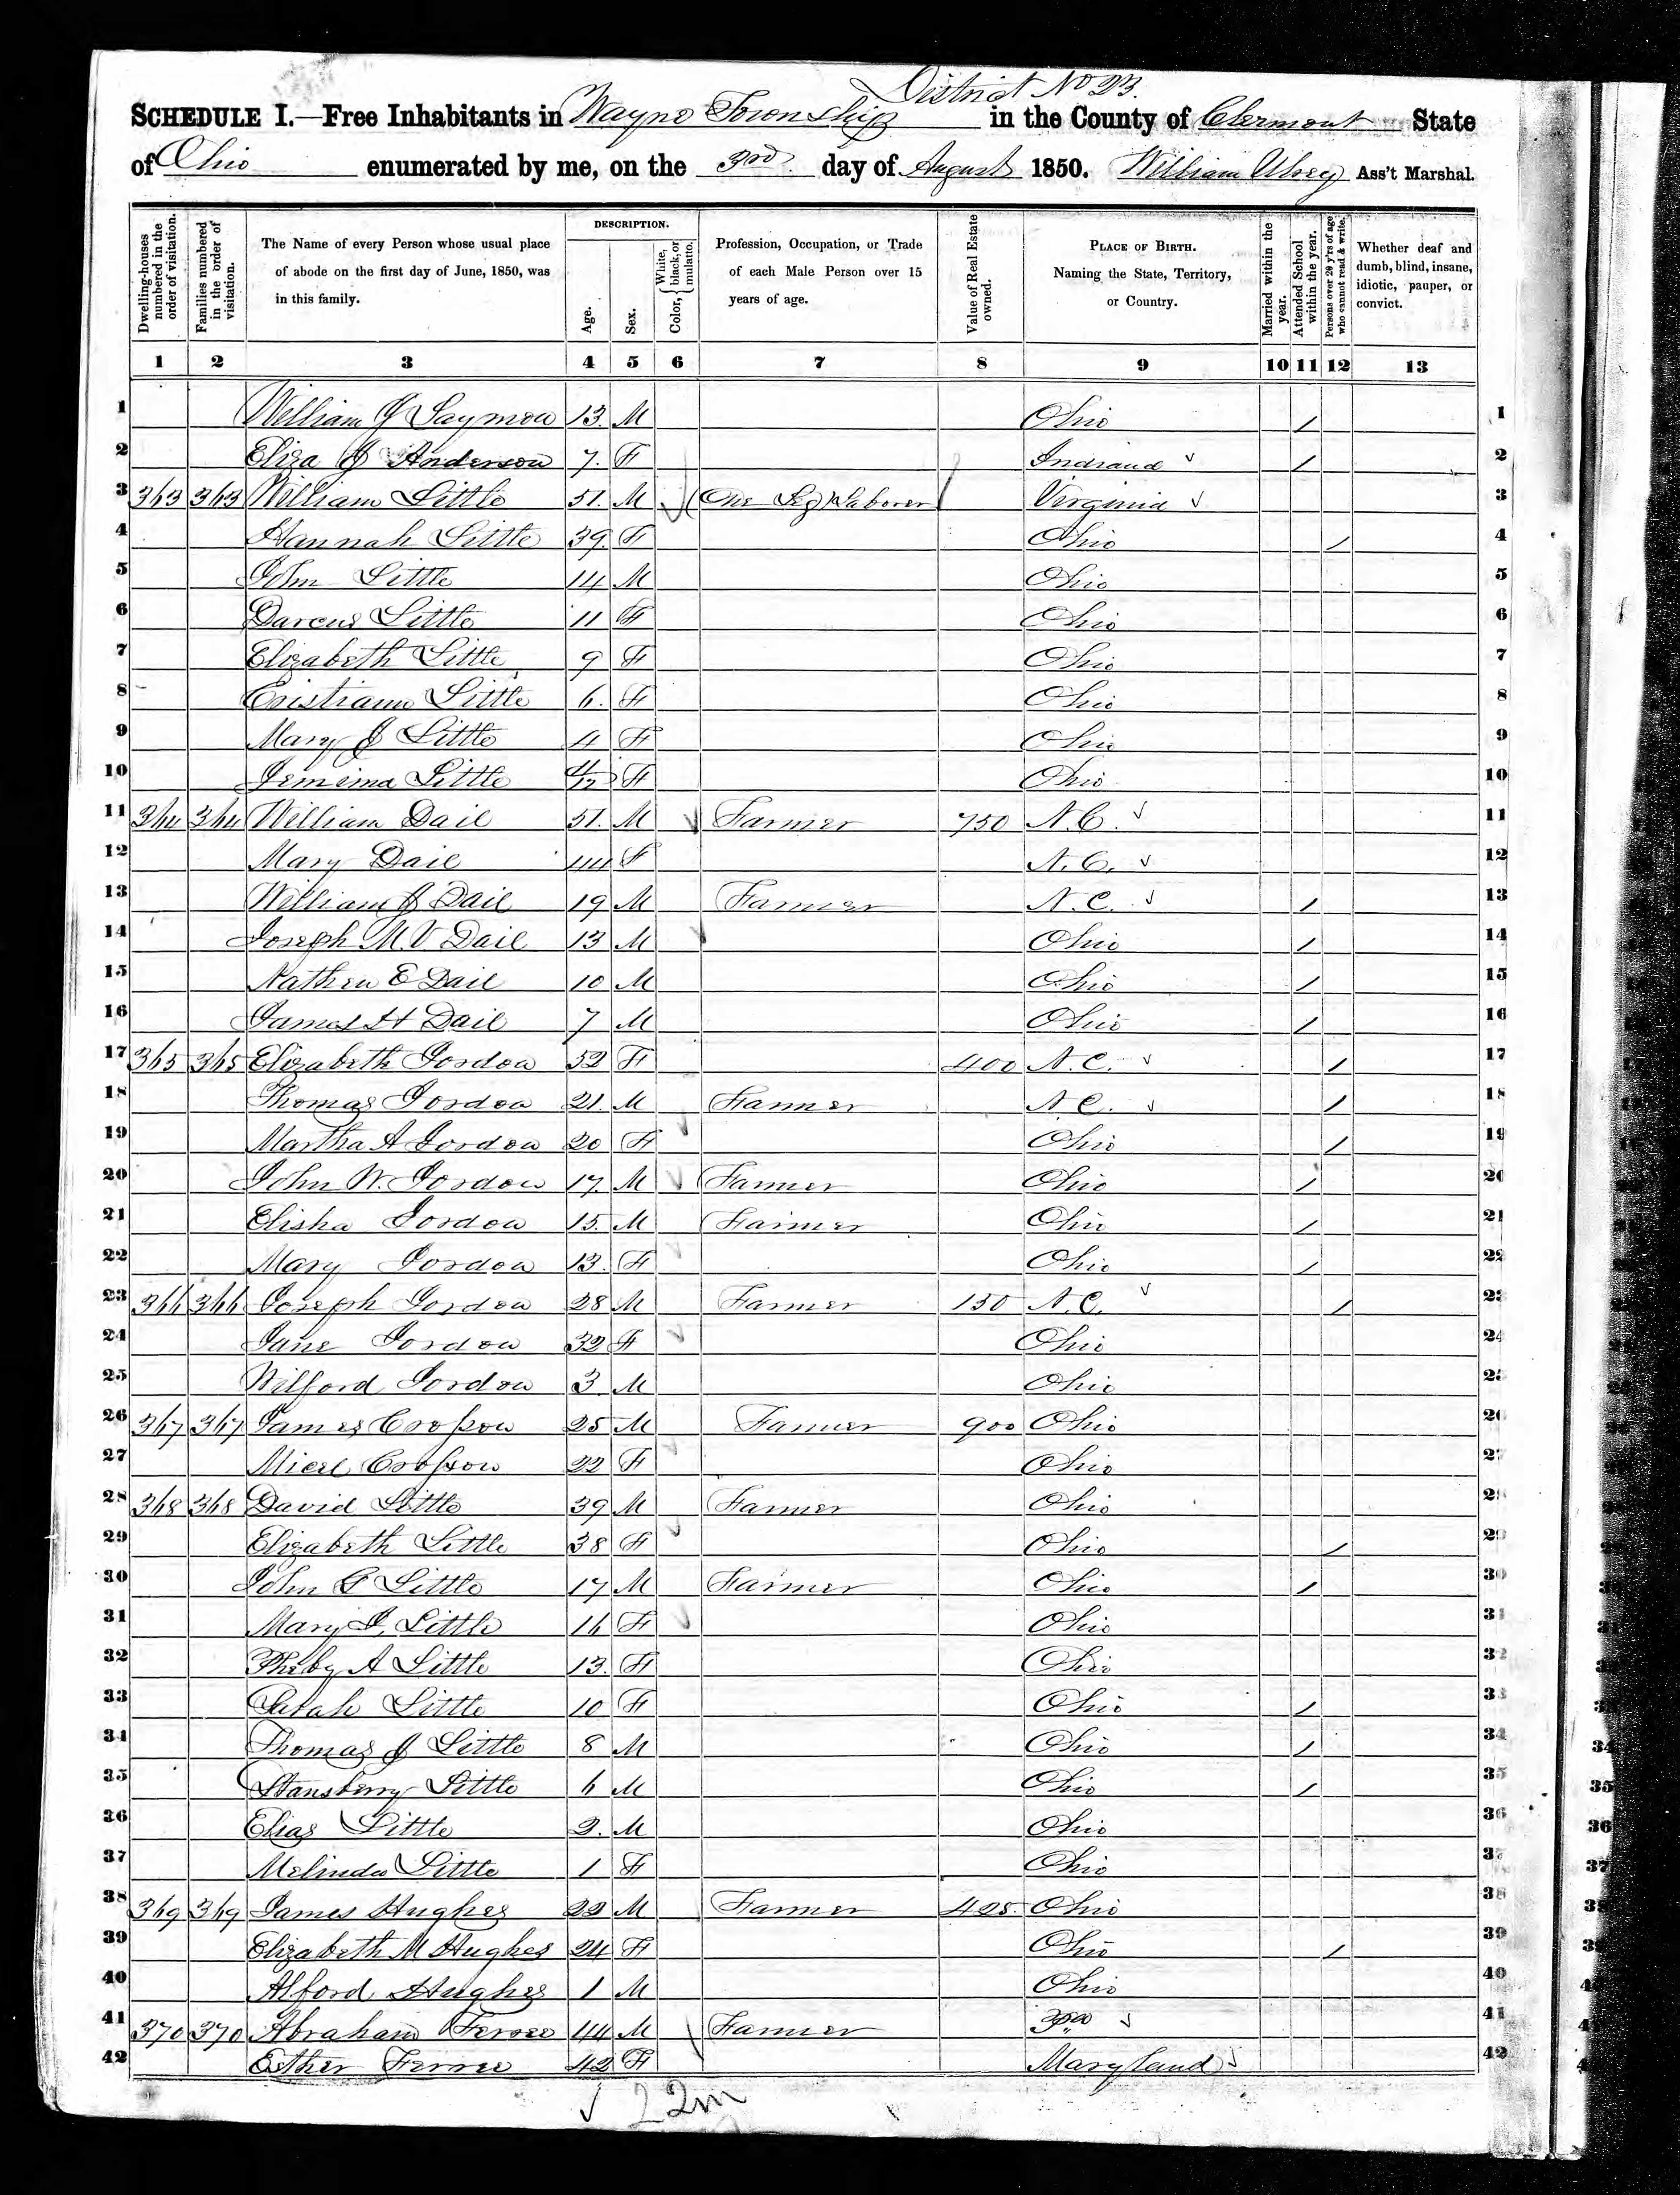 District No 23.
SCHEDULE I.—Free Inhabitants in Wayne Township in the County of Clermont State
of Ohio enumerated by me, on the 3rd day of August 1850. William Ulrey Ass't Marshal.
Dwelling-houses numbered in the order of visitation.
Families numbered in the order of visitation.
The Name of every Person whose usual place of abode on the first day of June, 1850, was in this family.
DESCRIPTION.
Age.
Sex.
Color, { White, black, or mulatto.
Profession, Occupation, or Trade of each Male Person over 15 years of age.
Value of Real Estate owned.
PLACE OF BIRTH. Naming the State, Territory, or Country.
Married within the year.
Attended School within the year.
Persons over 20 y'rs of age who cannot read & write.
Whether deaf and dumb, blind, insane, idiotic, pauper, or convict.
1 2 3 4 5 6 7 8 9 10 11 12 13
1 William J 13. M Ohio / 1
2 Eliza J Anderson 7. F Indiana ✓ / 2
3 363 363 William Little 51. M ✓ (One Leg) Laborer Virginia ✓ 3
4 Hannah Little 39. F Ohio / 4
5 John Little 14 M Ohio 5
6 Darcus Little 11 F Ohio 6
7 Elizabeth Little 9 F Ohio 7
8 Cristiann Little 6. F Ohio 8
9 Mary J Little 4 F Ohio 9
10 Jemima Little 4/12 F Ohio 10
11 364 364 William Dail 51. M ✓ Farmer 750 N.C. ✓ 11
12 Mary Dail 44 F N.C. ✓ 12
13 William J Dail 19 M Farmer N.C. ✓ / 13
14 Joseph M V Dail 13 M ✓ Ohio / 14
15 Nathan E Dail 10 M Ohio / 15
16 James H Dail 7 M Ohio / 16
17 365 365 Elizabeth Jordon 52 F 400 N.C. ✓ / 17
18 Thomas Jordon 21. M Farmer N.C. ✓ / 18
19 Martha A Jordon 20 F ✓ Ohio / 19
20 John W. Jordon 17. M ✓ Farmer Ohio / 20
21 Elisha Jordon 15. M Farmer Ohio / 21
22 Mary Jordon 13. F ✓ Ohio / 22
23 366 366 Joseph Jordon 28 M Farmer 150 N.C. ✓ / 23
24 Jane Jordon 32 F ✓ Ohio 24
25 Wilford Jordon 3 M Ohio 25
26 367 367 James Crosson 25 M Farmer 900 Ohio 26
27 Crosson 22 F ✓ Ohio 27
28 368 368 David Little 39 M Farmer Ohio 28
29 Elizabeth Little 38 F ✓ Ohio / 29
30 John G Little 17 M Farmer Ohio / 30
31 Mary J. Little 16 F ✓ Ohio 31
32 Pheby A Little 13. F Ohio 32
33 Sarah Little 10 F Ohio / 33
34 Thomas J Little 8 M Ohio / 34
35 Stansberry Little 6 M Ohio / 35
36 Elias Little 2. M Ohio 36
37 Melinda Little 1 F Ohio 37
38 369 369 James Hughes 22 M Farmer 425 Ohio 38
39 Elizabeth M Hughes 24 F Ohio / 39
40 Alford Hughes 1 M Ohio 40
41 370 370 Abraham Ferree 44 M ✓ Farmer ✓ 41
42 Esther Ferree 42 F Maryland ✓ 42
✓ 22m
34
35
36
37